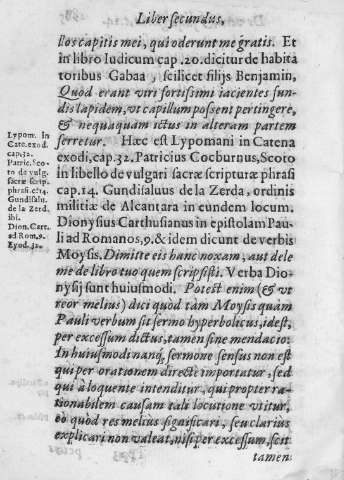 Liber secundus,
los capitis mei, qui oderunt me gratis. Et
in libro Iudicum cap. 20. dicitur de habita
toribus Gabaa, scilicet filijs Benjamin,
Quod erant viri fortissimi iacientes fun-
dis lapidem, vt capillum possent pertingere,
& nequaquam ictus in alteram partem
ferretur. Hæc est Lypomani in Catena
exodi, cap. 32. Patricius Cocburnus, Scoto
in libello de vulgari sacræ scripturæ phrasi
cap. 14. Gundisaluus de la Zerda, ordinis
militiæ de Alcantara in eundem locum.
Dionysius Carthusianus in epistolam Pau-
li ad Romanos, 9. & idem dicunt de verbis
Moysis. Dimitte eis hanc noxam, aut dele
me de libro tuo quem scripsisti. Verba Dio-
nysij sunt huiusmodi. Potest enim (& vt
reor melius) duci quod tam Moysis quam
Pauli verbum sit sermo hyperbolicus, idest,
per excessum dictus, tamen sine mendacio:
In huiusmodi nanq; sermone sensus non est
qui per orationem directè importatur, sed
qui à loquente intenditur, qui propter ra-
tionabilem causam tali locutione vtitur,
eò quòd res melius significari, seu clarius
explicari non valeat, nisi per excessum, scit
tamen
Lypom. In
Cate. exod.
cap. 32.
Patric. Sco-
to de vulg-
sacræ scrip.
phrasi c. 14.
Gundisalu.
de la Zerd.
ibi.
Dion. Cart.
ad Rom. 9.
Exod. 32.